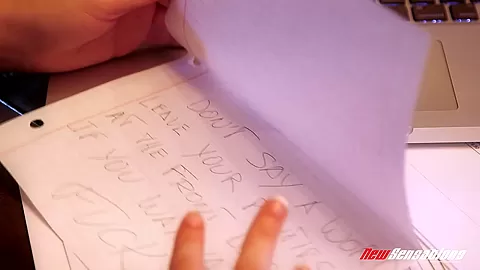 DON'T SAY A WORD
LEAVE YOUR PANTIES
AT THE FRONT
IF YOU WA
FUCK
NewSensations